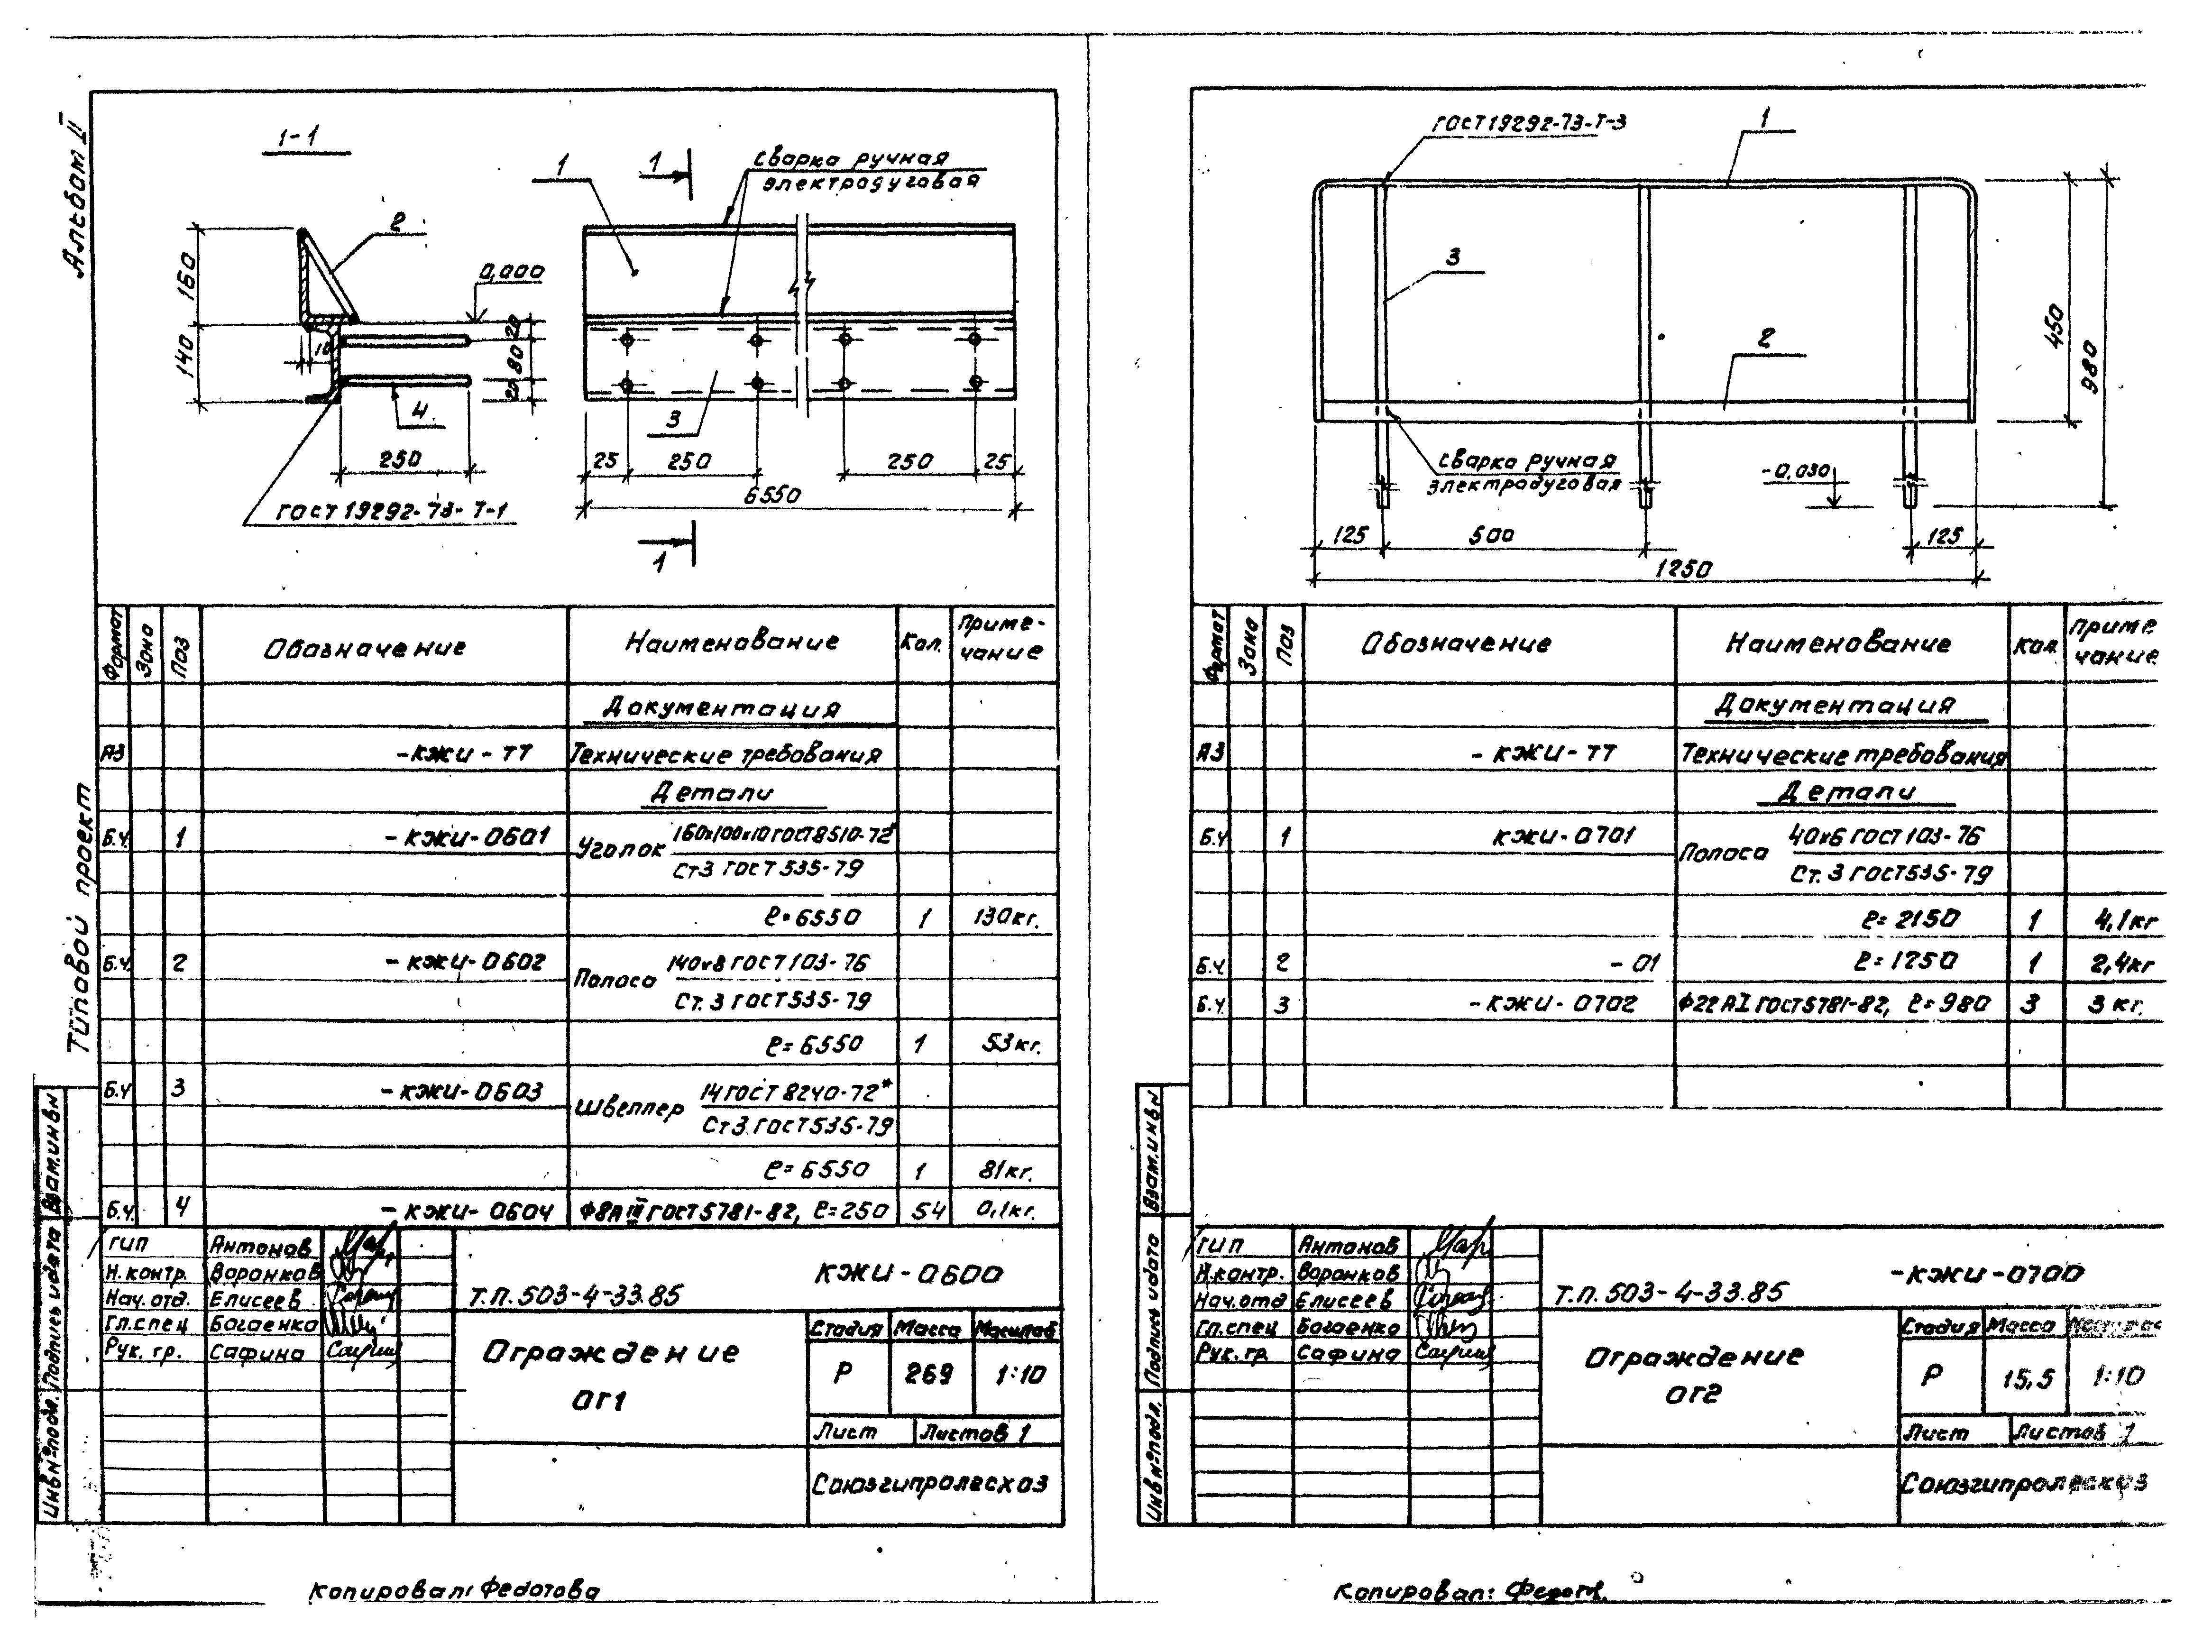 Альбом II
Типовой проект
1-1
1
1
сварка ручная
электродуговая
2
0,000
160
140
10
20
80
20
4
3
250
25
250
250
25
6550
ГОСТ 19292-73-Т-1
1
Формат Зона Поз Обозначение Наименование Кол. Приме-
чание
Документация
А3 -КЖИ-ТТ Технические требования
Детали
Б.Ч. 1 -КЖИ-0601 Уголок 160х100х10 ГОСТ 8510-72*
Ст3 ГОСТ 535-79
ℓ=6550 1 130кг.
Б.Ч. 2 -КЖИ-0602 Полоса 140х8 ГОСТ 103-76
Ст.3 ГОСТ 535-79
ℓ=6550 1 53кг.
Б.Ч 3 -КЖИ-0603 Швеллер 14 ГОСТ 8240-72*
Ст3.ГОСТ 535-79
ℓ=6550 1 81кг.
Б.Ч. 4 -КЖИ-0604 Ф8АIII ГОСТ 5781-82, ℓ=250 54 0,1кг.
ГИП Антонов
Н.контр. Воронков
Нач.отд. Елисеев
Гл.спец Богаенко
Рук. гр. Сафина
Т.П. 503-4-33.85 КЖИ-0600
Ограждение
ОГ1
Стадия Масса Масштаб
Р 269 1:10
Лист Листов 1
Союзгипролесхоз
Инв№подл. Подпись и дата Взам.инв№
Копировал: Федотова
ГОСТ 19292-73-Т-3
1
3
2
450
980
сварка ручная
электродуговая
-0,030
125
500
125
1250
Формат Зона Поз Обозначение Наименование Кол. Приме
чание
Документация
А3 -КЖИ-ТТ Технические требования
Детали
Б.Ч 1 КЖИ-0701 Полоса 40х6 ГОСТ 103-76
Ст.3 ГОСТ 535-79
ℓ=2150 1 4,1кг
Б.Ч. 2 -01 ℓ=1250 1 2,4кг
Б.Ч. 3 -КЖИ-0702 Ф22АI ГОСТ 5781-82, ℓ=980 3 3 кг.
ГИП Антонов
Н.контр. Воронков
Нач.отд Елисеев
Гл.спец Богаенко
Рук.гр Сафина
Т.П. 503-4-33.85 -КЖИ-0700
Ограждение
ОГ2
Стадия Масса Масштаб
Р 15,5 1:10
Лист Листов 1
Союзгипролесхоз
Инв№подл. Подпись и дата Взам.инв№
Копировал: